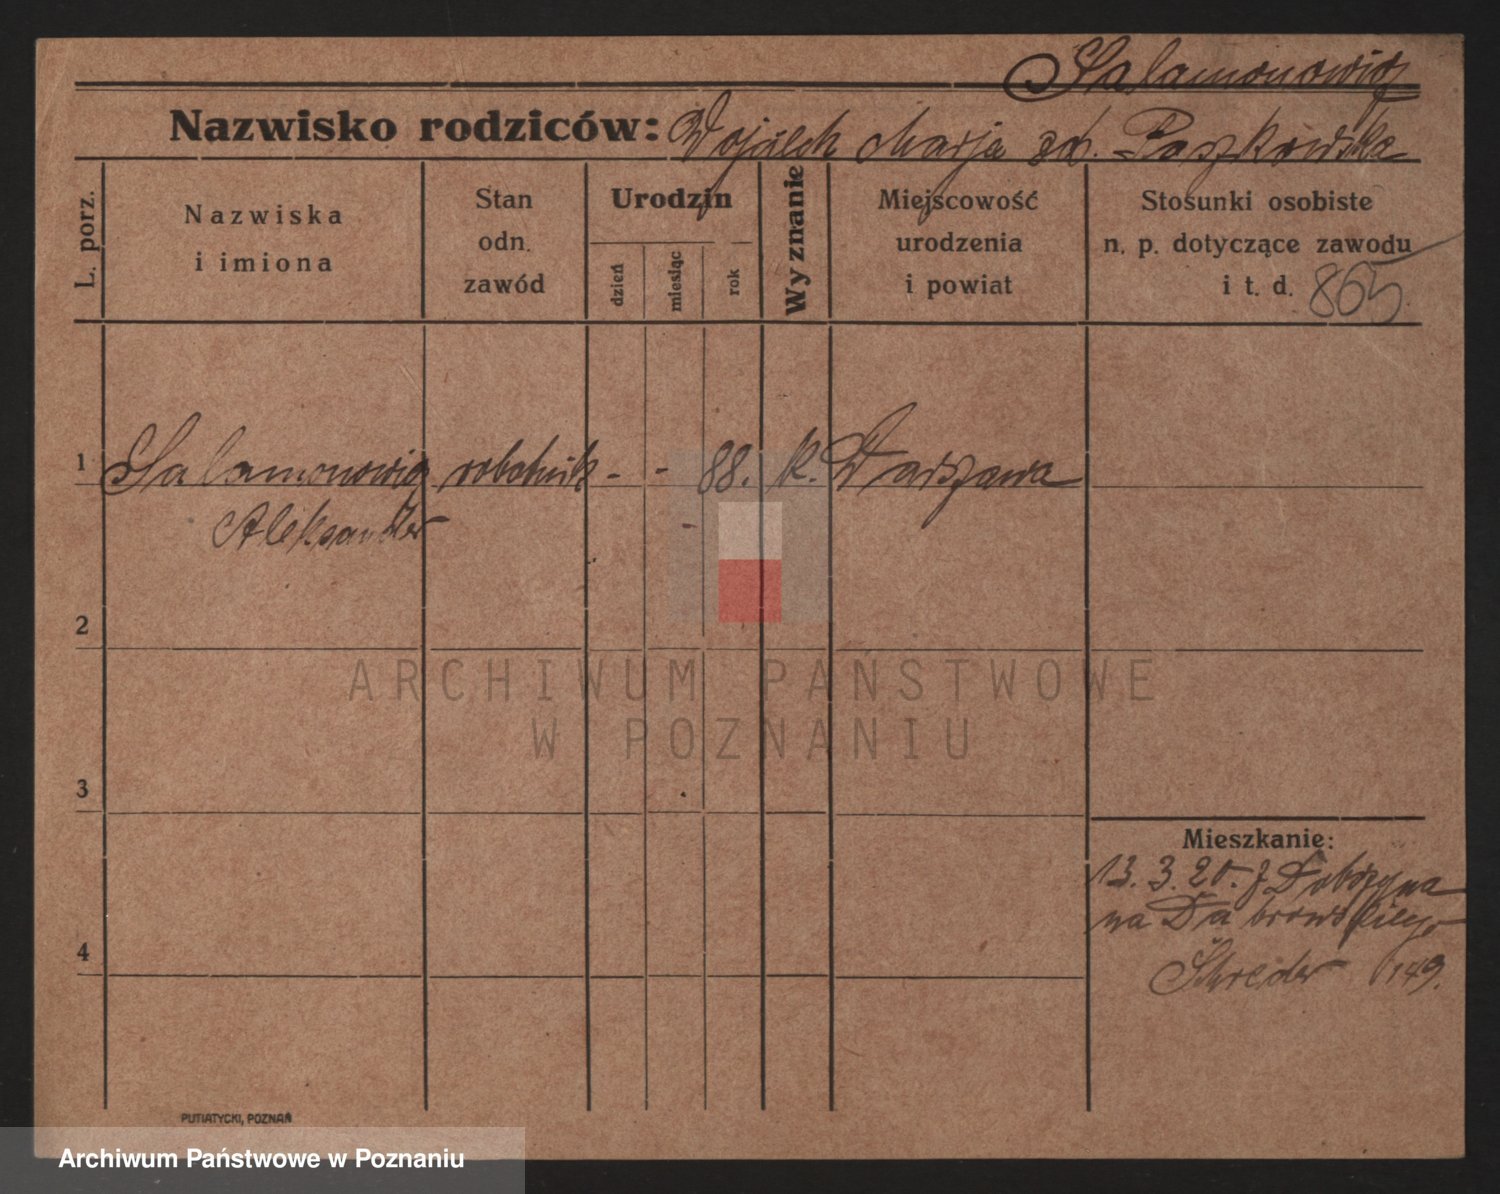 Salamonowicz
Nazwisko rodziców: Wojciech Marja zd. Paszkowska
L. porz.
Nazwiska
i imiona
Stan
odn.
zawód
Urodzin
dzień
miesiąc
rok
Wyznanie
Miejscowość
urodzenia
i powiat
Stosunki osobiste
n. p. dotyczące zawodu
i t. d. 865.
1 Salamonowicz robotnik - - 88. k. Warszawa
Aleksander -
2
3
4
Mieszkanie:
13. 3. 20. z Dobrzyna
na Dabrowskiego
149.
PUTIATYCKI, POZNAŃ
ARCHIWUM PAŃSTWOWE
W POZNANIU
Archiwum Państwowe w Poznaniu